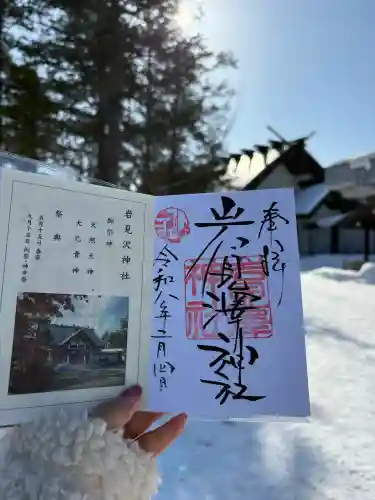 奉拝
岩見澤神社
令和八年二月四日
岩見沢神社
御祭神
天照大神
大己貴神
祭典
五月十五日 春祭
九月十五日 例祭・神幸祭